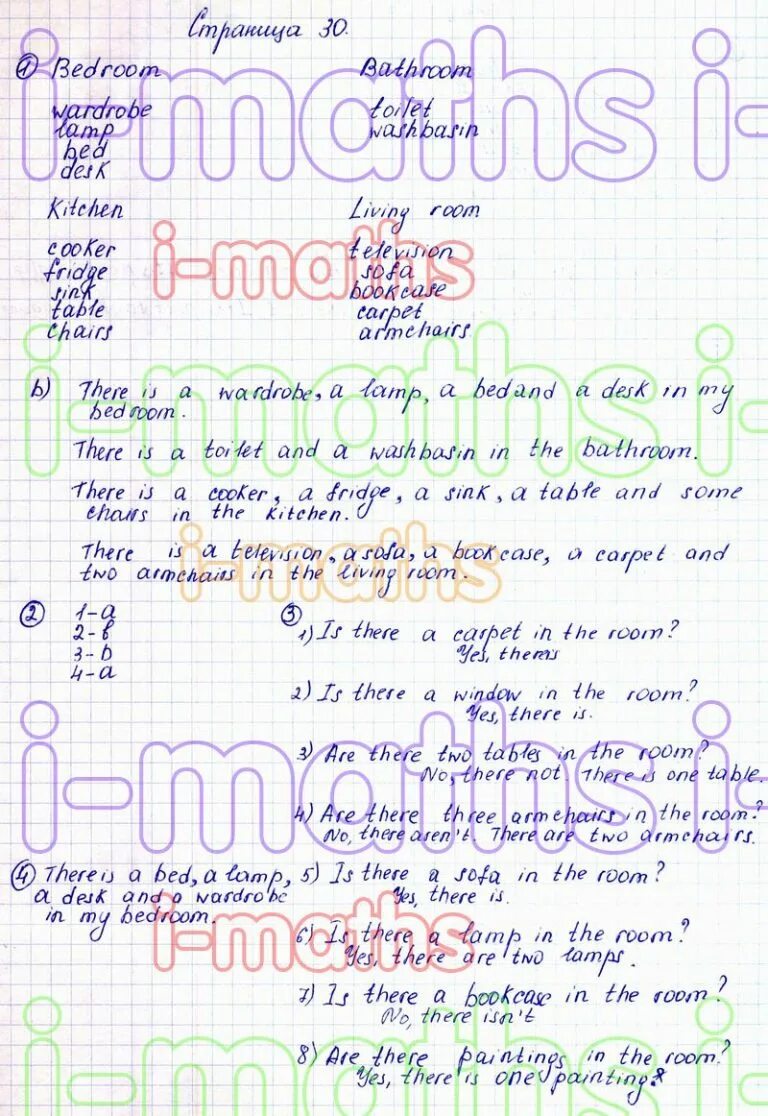 Страница 30.
① Bedroom Bathroom
wardrobe toilet
lamp washbasin
bed
desk
Kitchen Living room
cooker television
fridge sofa
sink bookcase
table carpet
chairs armchairs
b) There is a wardrobe, a lamp, a bed and a desk in my
bedroom.
There is a toilet and a washbasin in the bathroom.
There is a cooker, a fridge, a sink, a table and some
chairs in the kitchen.
There is a television, a sofa, a bookcase, a carpet and
two armchairs in the living room.
② 1-a
2-b
3-b
4-a
③
1) Is there a carpet in the room?
Yes, there is
2) Is there a window in the room?
Yes, there is.
3) Are there two tables in the room?
No, there not. There is one table.
4) Are there three armchairs in the room?
No, there aren't. There are two armchairs.
④ There is a bed, a lamp,
a desk and a wardrobe
in my bedroom.
5) Is there a sofa in the room?
Yes, there is.
6) Is there a lamp in the room?
Yes, there are two lamps.
7) Is there a bookcase in the room?
No, there isn't
8) Are there paintings in the room?
Yes, there is one painting.
i-maths i-
i-maths
i-maths i-
i-maths
i-maths i-
i-maths
i-maths i-